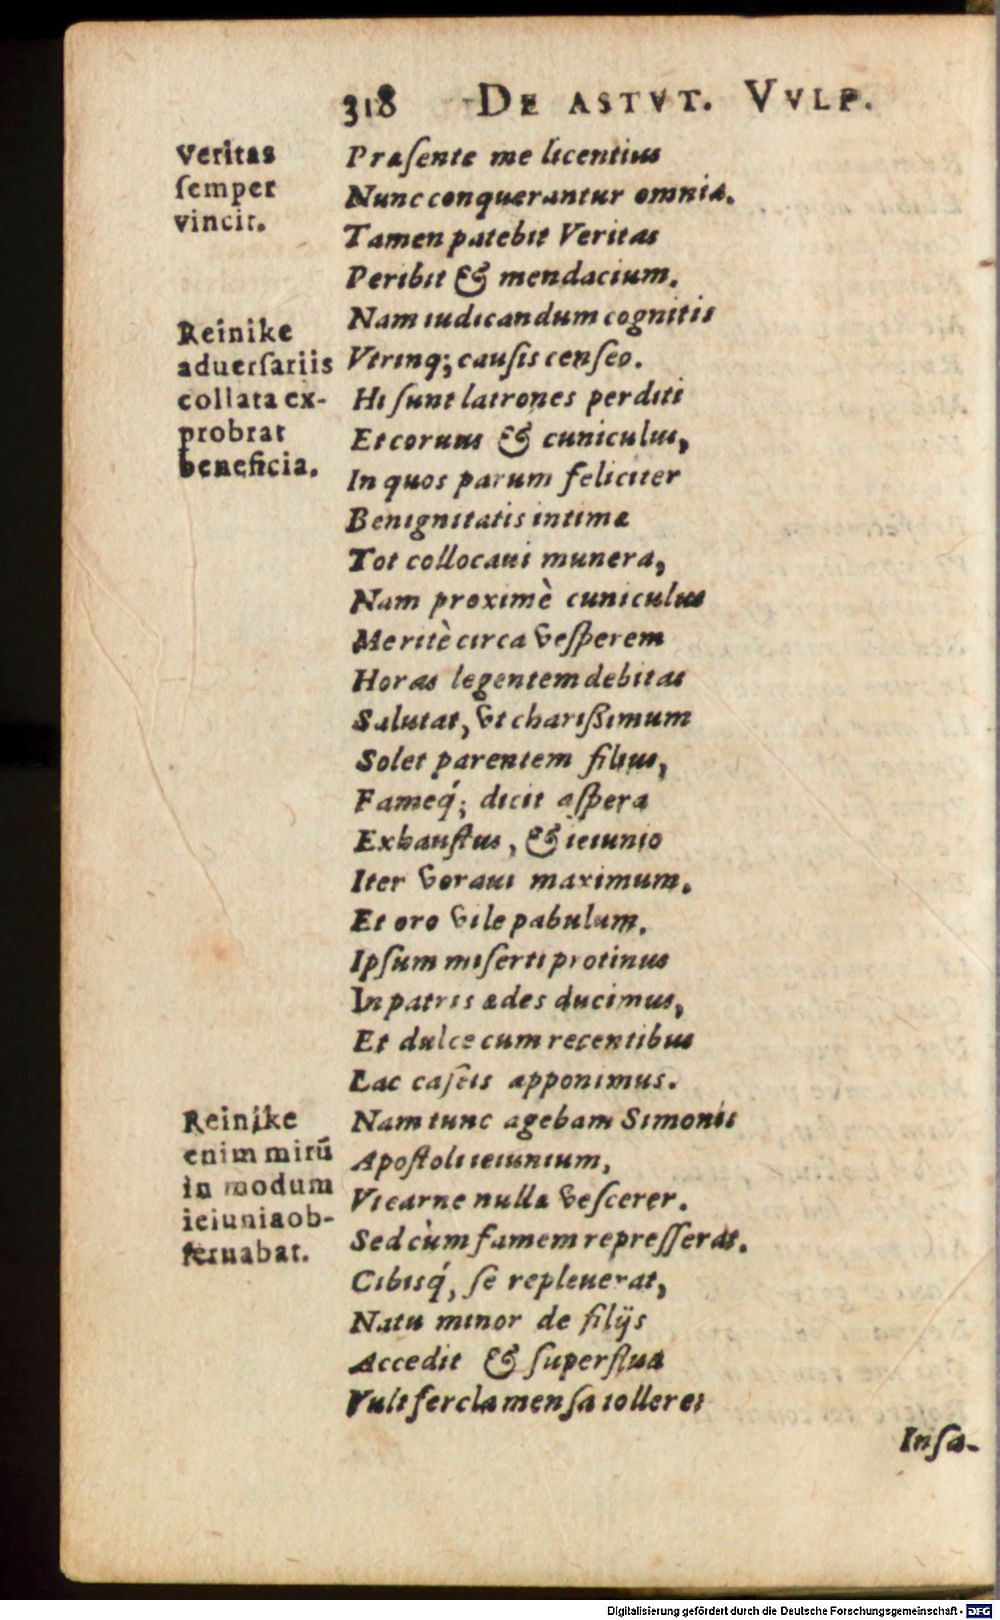 318 DE ASTVT. VVLP.
Veritas
ſemper
vincit.
Præſente me licentius
Nunc conquerantur omnia.
Tamen patebit Veritas
Peribit & mendacium.
Nam iudicandum cognitis
Vtrinq; cauſis cenſeo.
Reinike
aduerſariis
collata ex-
probrat
beneficia.
Hi ſunt latrones perditi
Et coruus & cuniculus,
In quos parum feliciter
Benignitatis intimæ
Tot collocaui munera,
Nam proximè cuniculus
Me ritè circa veſperem
Horas legentem debitas
Salutat, vt chariſsimum
Solet parentem filius,
Fameq́; dicit aſpera
Exhauſtus, & ieiunio
Iter voraui maximum.
Et oro vile pabulum.
Ipſum miſerti protinus
In patris ædes ducimus,
Et dulce cum recentibus
Lac caſeis apponimus.
Reinike
enim mirū
in modum
ieiunia ob-
ſeruabat.
Nam tunc agebam Simonis
Apoſtoli ieiunium,
Vt carne nulla veſcerer.
Sed cùm famem repreſſerat.
Cibisq́, ſe repleuerat,
Natu minor de filijs
Accedit & ſuperflua
Vult fercla menſa tollere:
Inſa-
Digitalisierung gefördert durch die Deutsche Forschungsgemeinschaft - DFG